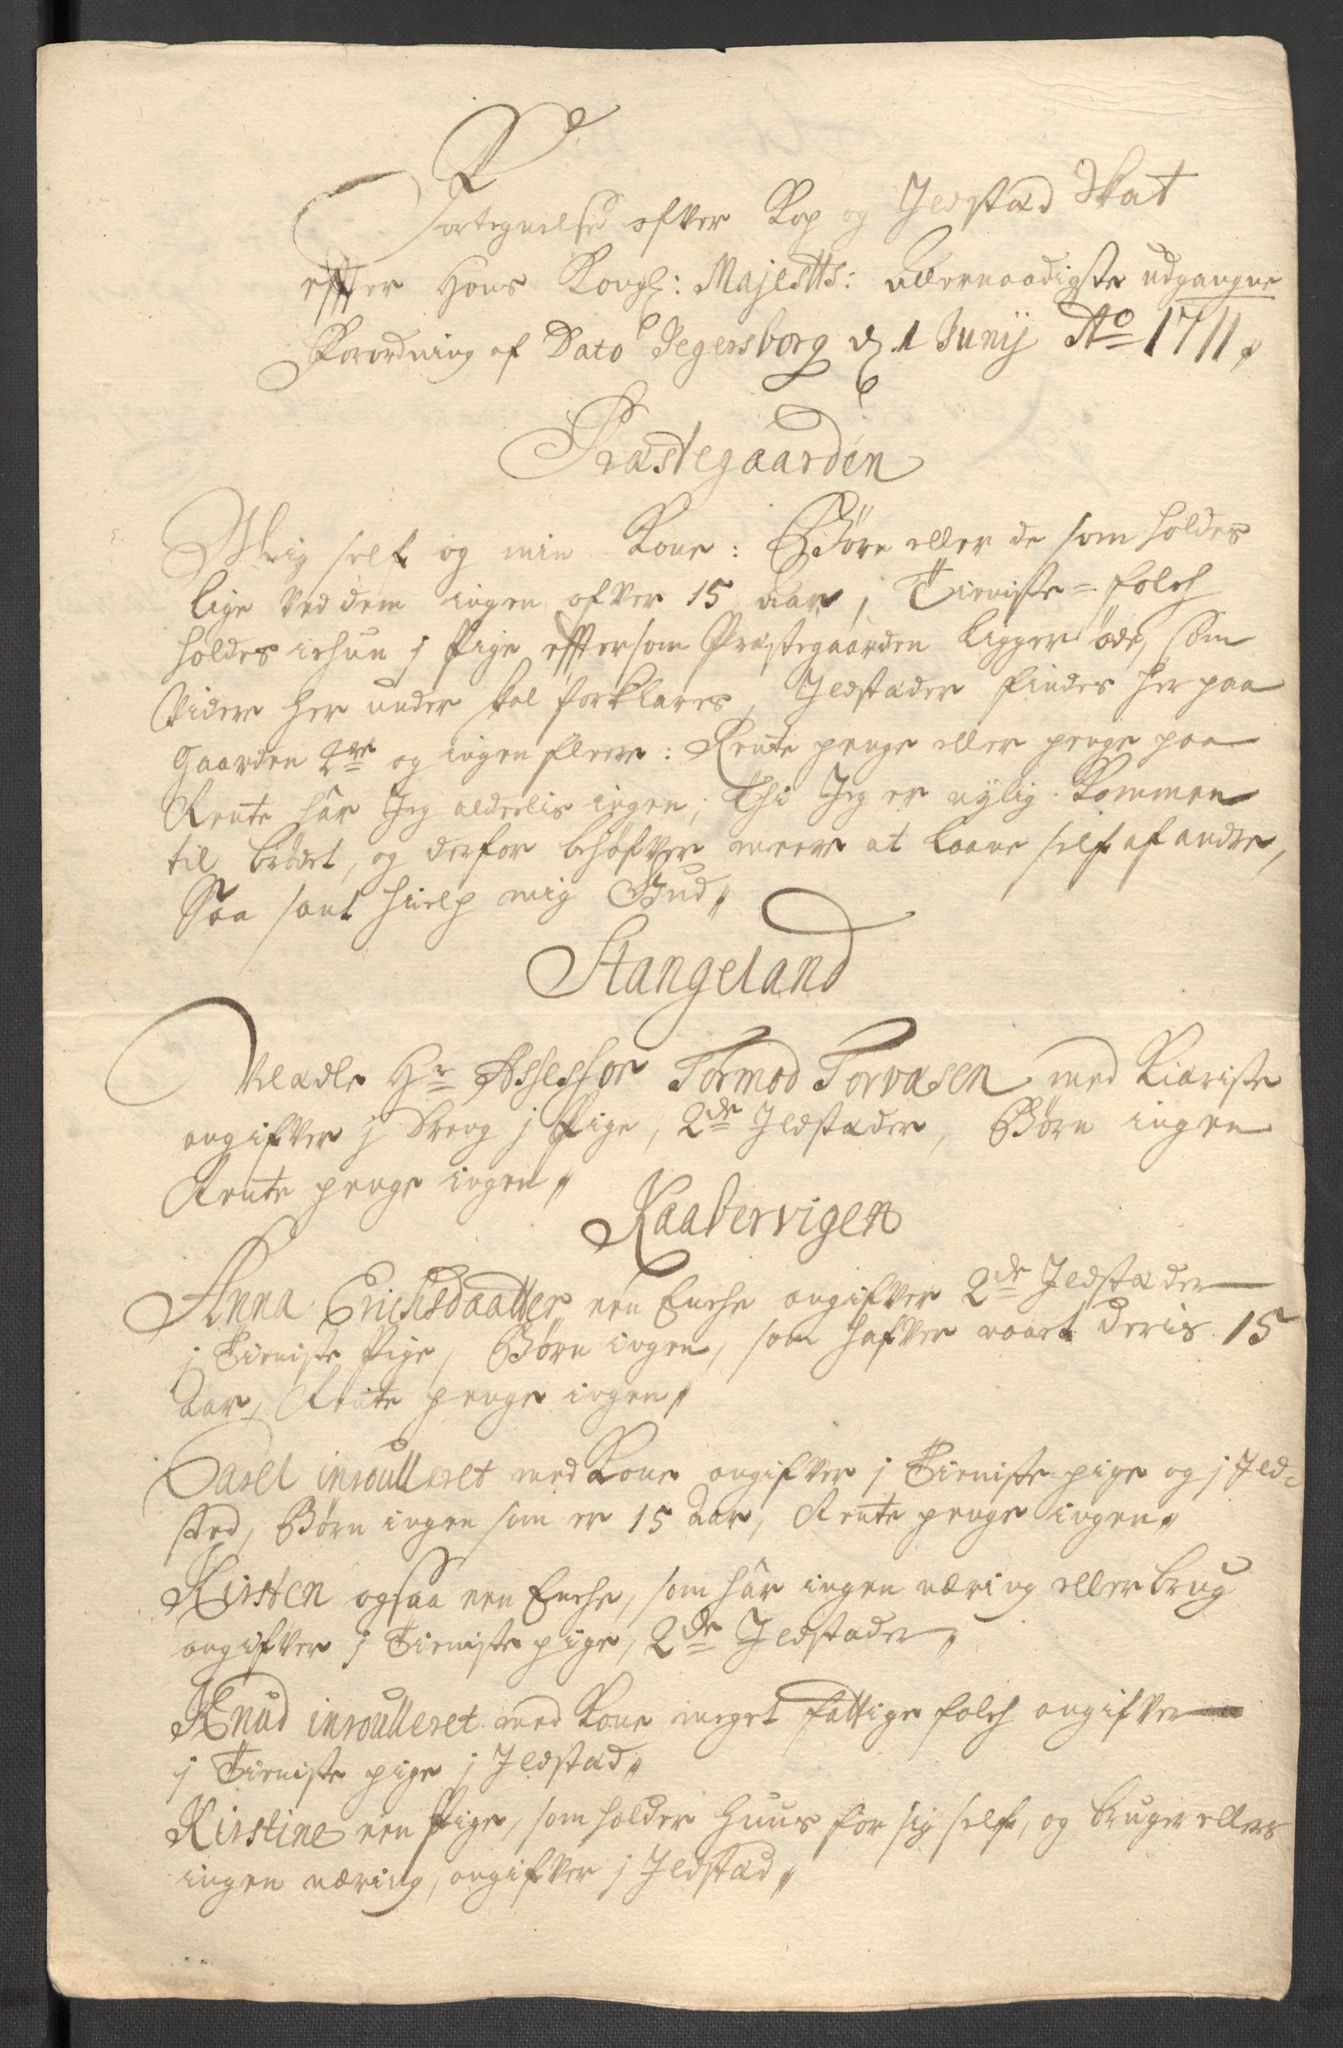 Fortegnelse ofver Kop og Jldstæd Skat
effter Hans Kongl: Majestts: allernaadigste udgangne
Forordning af Dato Jegersborg d 1 Junij Ao 1711,
Præstegaarden
Mig self og min Kone: Børn eller de som holdes
lige ved dem ingen ofver 15 aar, Tieniste=folch
holdes ichun j Pige efftersom Præstegaarden ligger øde, som
videre her under skal forklares, Jldstæder findes her paa
Gaarden 2de og ingen fleere: Rente penge eller penge paa
Rente hâr Jeg aldeelis ingen, thi Jeg er nylig kommen
til brødet, og derfor behøfver meere at laane self af andre,
Saa sant hielp mig Gud,
Stangeland
Velædle Hr Assessor Tormod Torvæsen med Kiæriste
angifver j dreng j Pige, 2de Jldstæder, Børn ingen
Rente penge ingen,
Kaabervigen
Anna Erichsdaatter een Enche angifver 2de Jldstæder
j Tieniste Pige, Børn ingen, som hafver naaet deris 15
Aar, Rente penge ingen,
Carel inroulleret med Kone angifver j Tieniste pige og j Jld=
sted, Børn ingen som er 15 Aar, Rente penge ingen,
Kirsten ogsaa een Enche, som hâr ingen næring eller brug
angifver j Tieniste pige, 2de Jldstæder,
Knud inroulleret med Kone meget fattige folch angifver
j Tieniste pige j Jldstæd,
Kirstine een Pige, som holder Huus for sig self, og bruger ellers
ingen næring, angifver j Jldstæd,